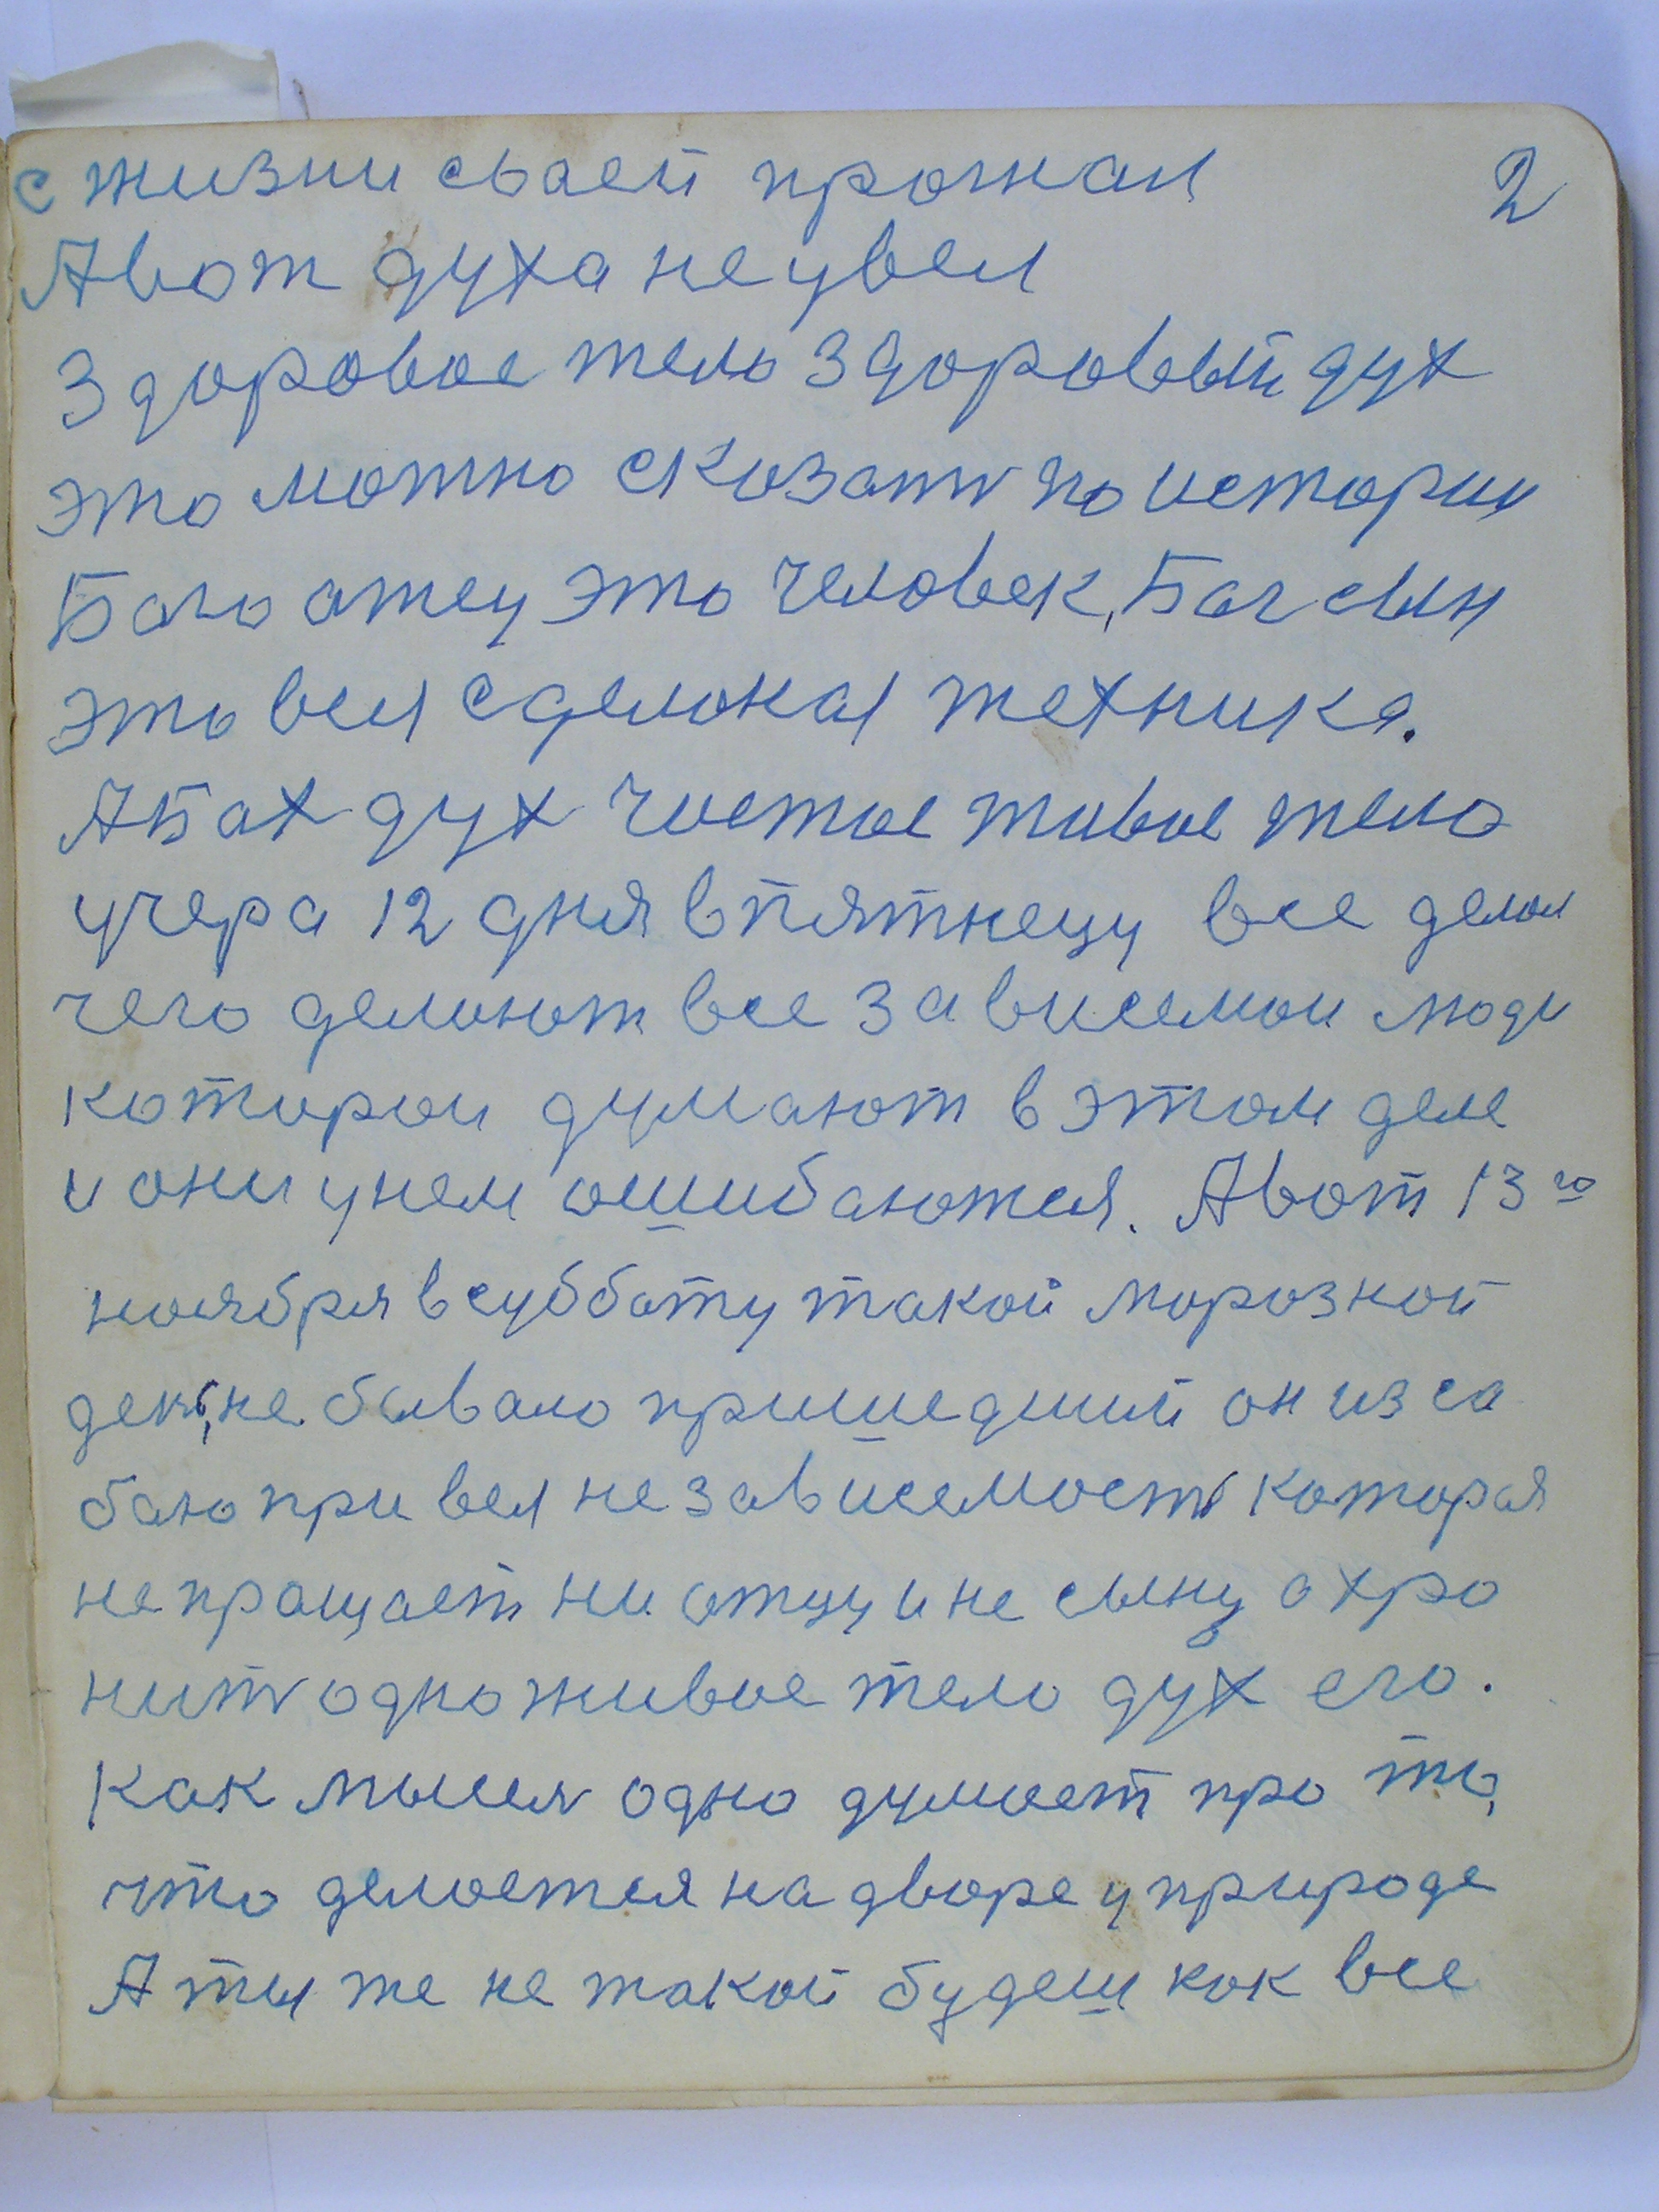 с жизни сваей прогнал 2
Авот духа не увел
Здоровое тело здоровый дух
это можно сказать по истории
Бого атец это человек, Баг сын
это вся сделоная техника.
АБах дух чистое живое тело
учера 12 дня впятнецу все делал
чего делают все зависемои люди
которои думают в этом деле
и они унем ошибаются. Авот 13го
ноября всубботу такой морозной
день, не бывало пришедший он из са
баю привел независемость которая
непращает ни отцу и не сыну а хро
нить одно живое тело дух его.
Как мысля одно думает про то,
что делоется на дворе у природе
А ты же не такой будеш как все